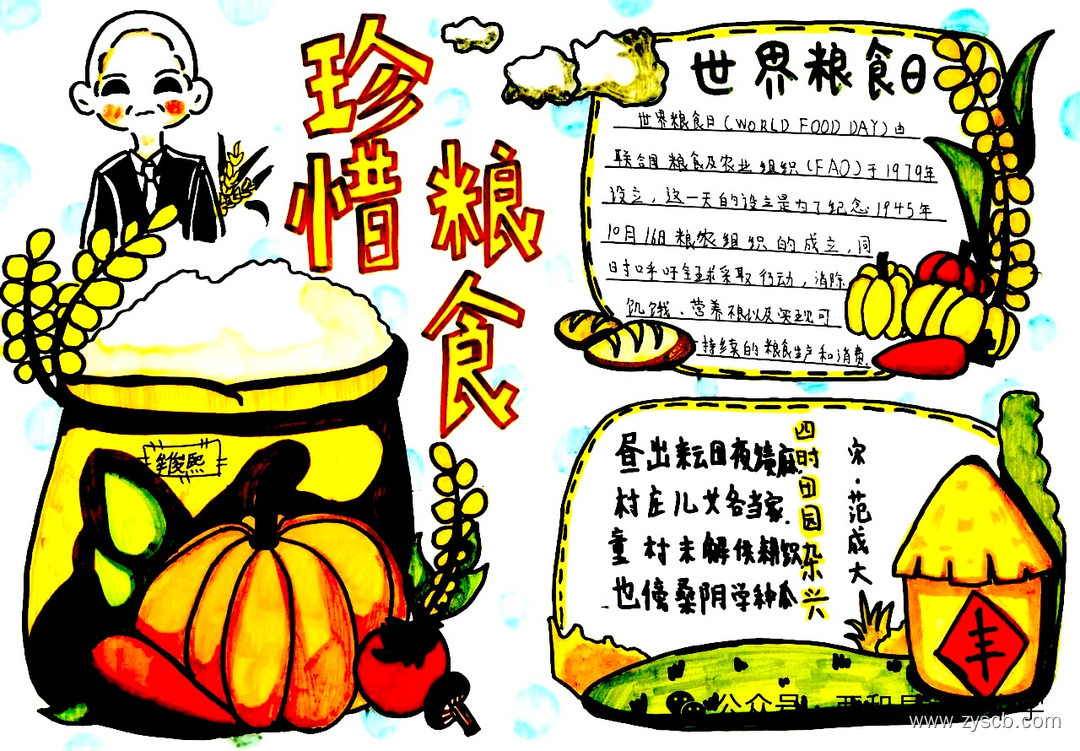 珍惜
粮食
世界粮食日
世界粮食日(WORLD FOOD DAY)由
联合国粮食及农业组织(FAO)于1979年
设立,这一天的设立是为了纪念1945年
10月16日粮农组织的成立,同
时呼吁全球采取行动,消除
饥饿、营养不良以及实现可
持续的粮食生产和消费.
四时田园杂兴
宋·范成大
昼出耘田夜绩麻
村庄儿女各当家.
童村未解供耕织
也傍桑阴学种瓜
丰
俊熙
公众号
www.zyscb.com